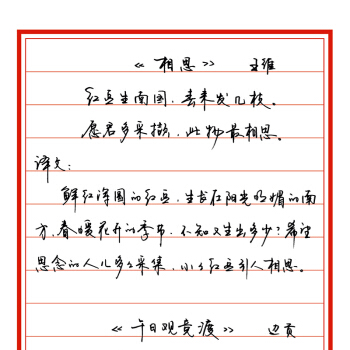 《相思》 王维
红豆生南国,春来发几枝。
愿君多采撷,此物最相思。
译文:
鲜红浑圆的红豆,生长在阳光明媚的南
方,春暖花开的季节,不知又生出多少?希望
思念的人儿多多采集,小小红豆引人相思。
《午日观竞渡》 边贡